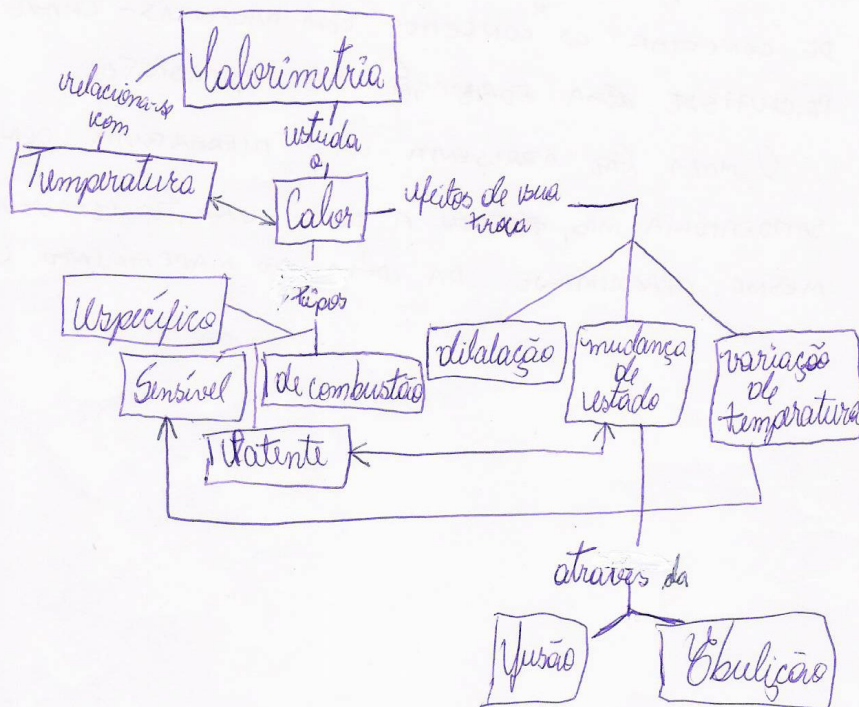 Calorimetria
relaciona-se
com
estuda
o
Temperatura
Calor
efeitos de sua
troca
tipos
específico
Sensível
de combustão
latente
dilatação
mudança
de
estado
variação
de
temperatura
através da
Fusão
Ebulição